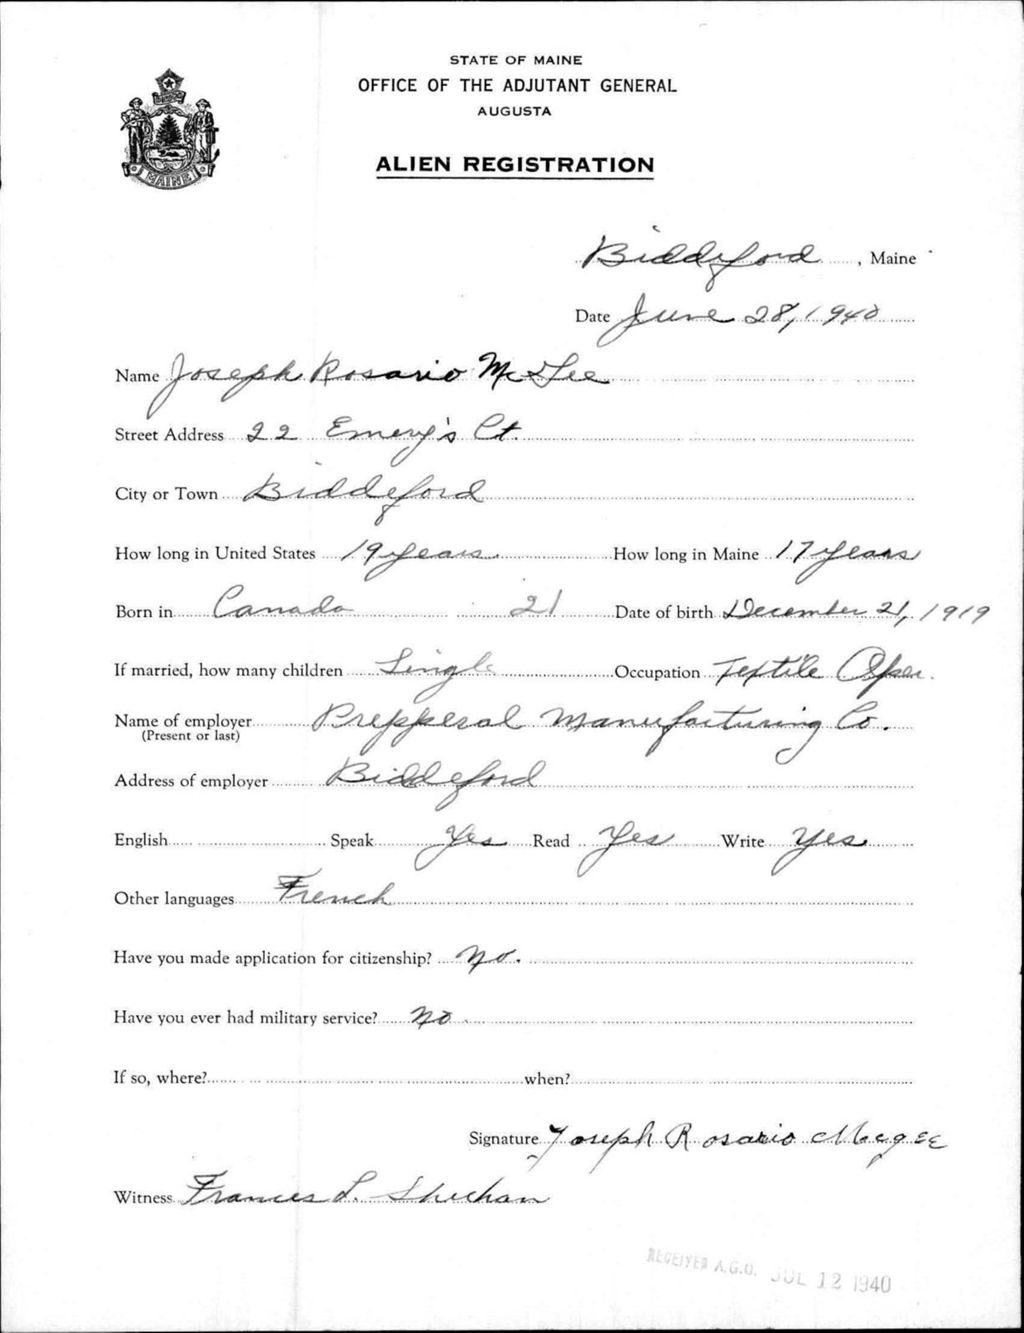 STATE OF MAINE
OFFICE OF THE ADJUTANT GENERAL
AUGUSTA
ALIEN REGISTRATION
MAINE
Biddeford, Maine
Date June 28, 1940
Name Joseph Rosario McGee
Street Address 22 Emery's Ct.
City or Town Biddeford
How long in United States 19 years How long in Maine 17 years
Born in Canada 21 Date of birth December 21, 1919
If married, how many children Single Occupation Textile Oper.
Name of employer Prepperal Manufacturing Co.
(Present or last)
Address of employer Biddeford
English Speak Yes Read Yes Write Yes
Other languages French
Have you made application for citizenship? No.
Have you ever had military service? No
If so, where? when?
Signature Joseph Rosario Mcgee
Witness Frances L. Sheehan
RECEIVED A.G.O. JUL 12 1940